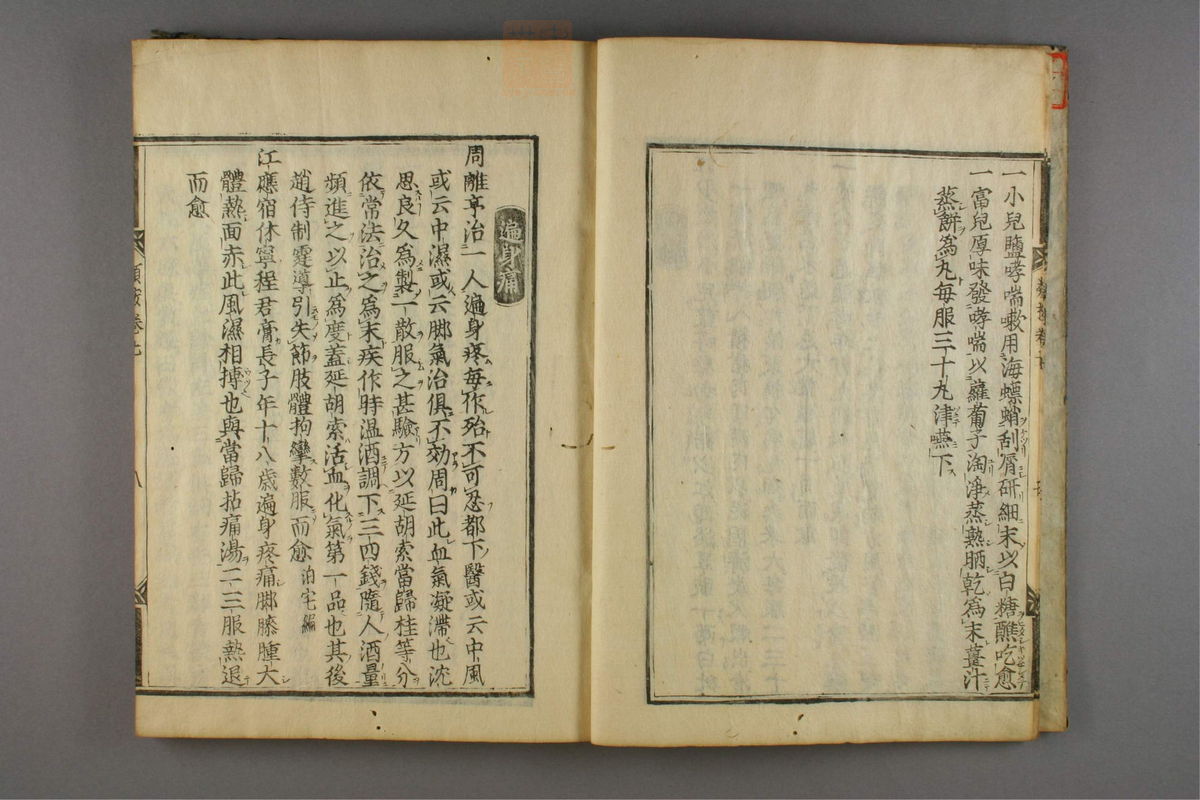 一小兒鹽哮喘嗽用海螵蛸刮屑研細末以白糖蘸吃愈
一富兒厚味發哮喘以蘿蔔子淘淨蒸熟晒乾為末薑汁
蒸餅為丸每服三十丸津嚥下
遍身痛
周離亨治一人遍身疼每作殆不可忍都下醫或云中風
或云中濕或云脚氣治俱不効周曰此血氣凝滯也沈
思良久為製一散服之甚驗方以延胡索當歸桂等分
依常法治之為末疾作時温酒調下三四錢隨人酒量
頻進之以止為度蓋延胡索活血化氣第一品也其後
趙侍制霆導引失節肢體拘攣數服而愈 泊宅編
江應宿休寧程君膏長子年十八歲遍身疼痛脚膝腫大
體熱面赤此風濕相搏也與當歸拈痛湯二三服熱退
而愈